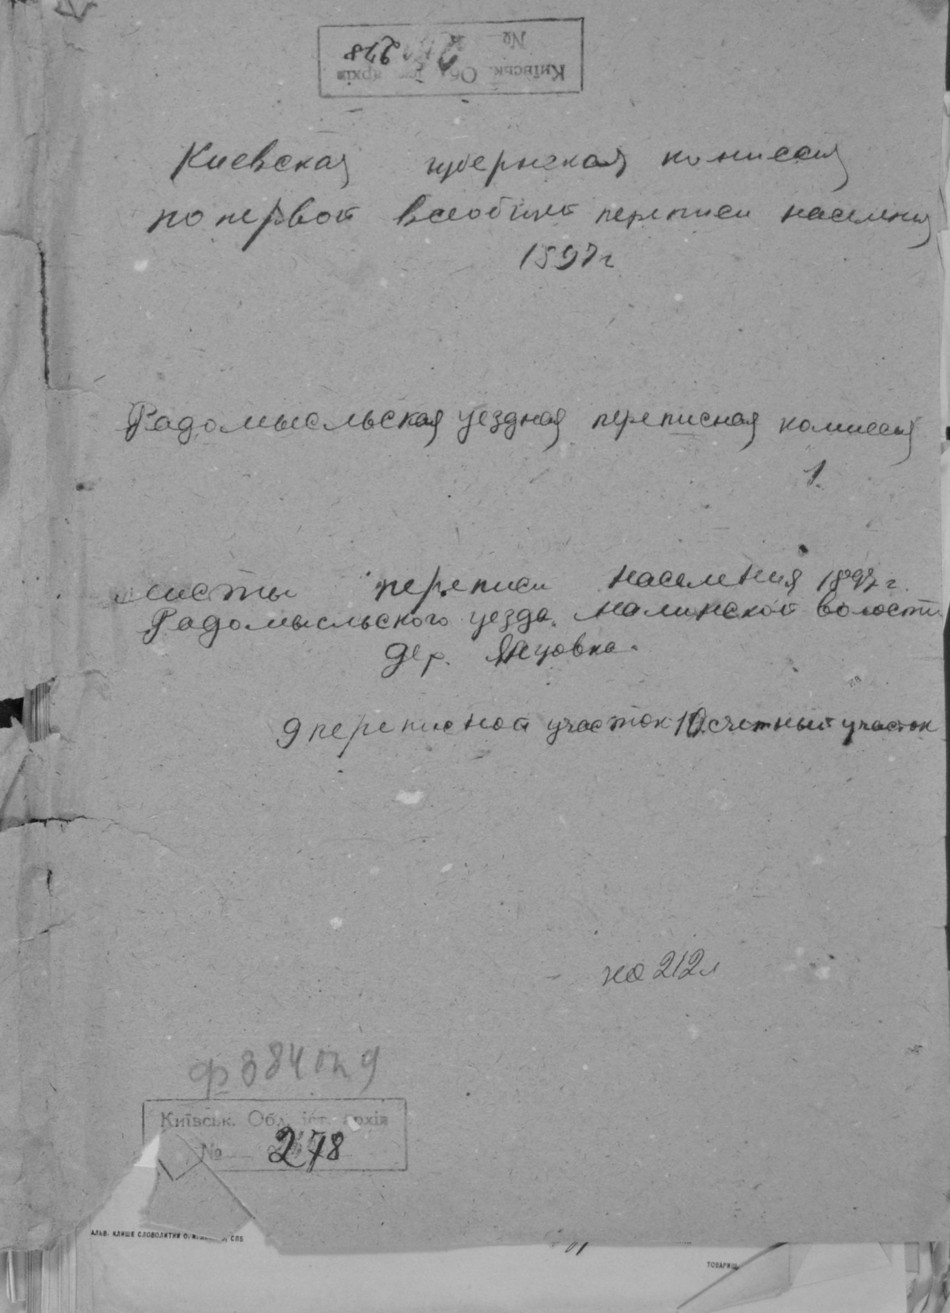 Київськ. Об. іст. архів
№ 278
Киевская губернская комиссия
по первой всеобщей переписи населения
1897 г
Радомысльская уездная переписная комиссия
1.
листы переписи населения 1897 г.
Радомысльского уезда. Малинской волости
дер. Яновка.
9 переписной участок 10 счетный участок
на 212 л
ф 384 оп 9
Київськ. Обл. іст. архів
№ 278
АЛЬБ. КЛИШЕ СЛОВОЛИТНИ СПБ
ТОВАРИЩ